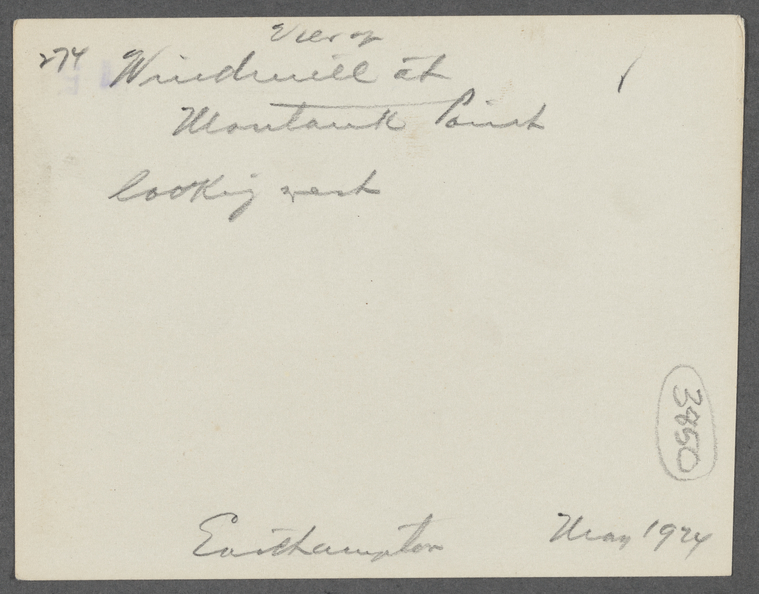 View of
274 Windmill at
Montauk Point
looking west
3850
Easthampton May 1924